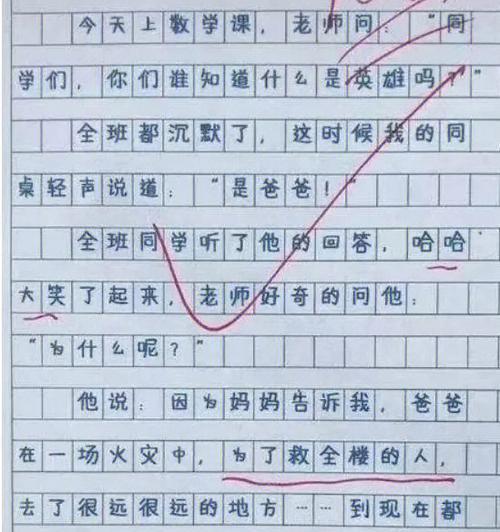 今天上数学课，老师问："同
学们，你们谁知道什么是英雄吗？"
全班都沉默了，这时候我的同
桌轻声说道："是爸爸！"
全班同学听了他的回答，哈哈
大笑了起来，老师好奇的问他：
"为什么呢？"
他说：因为妈妈告诉我，爸爸
在一场火灾中，为了救全楼的人，
去了很远很远的地方……到现在都